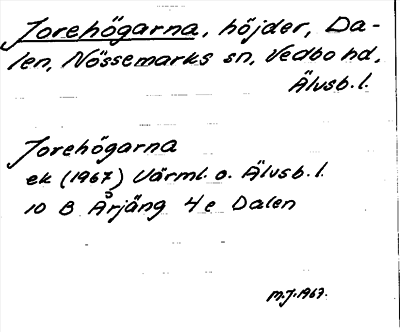 Torehögarna, höjder, Da-
len, Nössemarks sn, Vedbo hd,
Älvsb. l.
Torehögarna
ek (1967) Värml. o. Älvsb. l.
10 B Årjäng 4e Dalen
M.J. 1967.